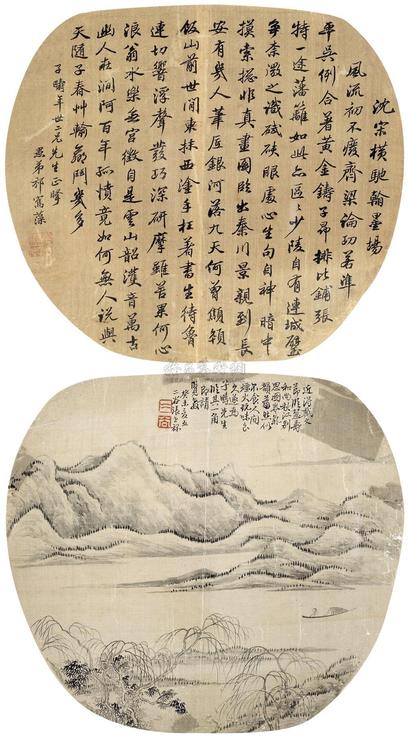 沈宋橫馳翰墨場
風流初不廢齊梁論功若準
平吳例合著黃金鑄子昂排比鋪張
特一途藩籬如此亦區區少陵自有連城璧
爭奈微之識碔砆眼處心生句自神暗中
摸索總非真畫圖臨出秦川景親到長
安有幾人筆底銀河落九天何曾顦顇
飯山前世間東抹西塗手枉著書生待魯
連切響浮聲發巧深研摩雖苦果何心
浪翁水樂無宮徵自是雲山韶濩音萬古
幽人在澗阿百年孤憤竟如何無人說與
天隨子春艸輸贏鬥幾多
年世二兄先生正
愚弟祁寯藻
近得戴文
不食人間
煙火
先生
臨其一角
即請
癸未